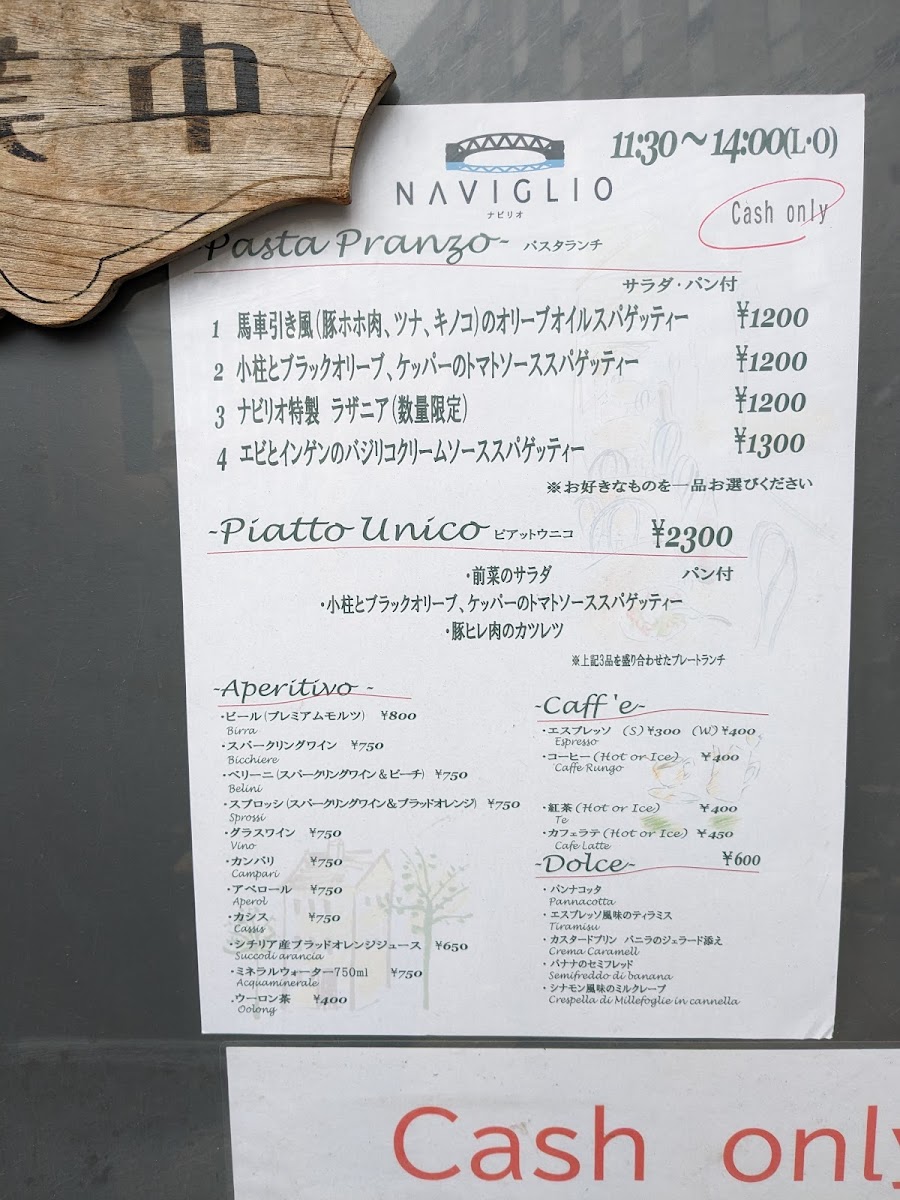 業中
11:30～14:00(L・O)
NAVIGLIO
ナビリオ
Cash only
-Pasta Pranzo- パスタランチ
サラダ・パン付
1 馬車引き風(豚ホホ肉、ツナ、キノコ)のオリーブオイルスパゲッティー ¥1200
2 小柱とブラックオリーブ、ケッパーのトマトソーススパゲッティー ¥1200
3 ナビリオ特製 ラザニア(数量限定) ¥1200
4 エビとインゲンのバジリコクリームソーススパゲッティー ¥1300
※お好きなものを一品お選びください
-Piatto Unico ピアットウニコ ¥2300
・前菜のサラダ パン付
・小柱とブラックオリーブ、ケッパーのトマトソーススパゲッティー
・豚ヒレ肉のカツレツ
※上記3品を盛り合わせたプレートランチ
-Aperitivo -
・ビール(プレミアムモルツ) ¥800
Birra
・スパークリングワイン ¥750
Bicchiere
・ベリーニ(スパークリングワイン&ピーチ) ¥750
Belini
・スプロッシ(スパークリングワイン&ブラッドオレンジ) ¥750
Sprossi
・グラスワイン ¥750
Vino
・カンパリ ¥750
Campari
・アペロール ¥750
Aperol
・カシス ¥750
Cassis
・シチリア産ブラッドオレンジジュース ¥650
Succodi arancia
・ミネラルウォーター750ml ¥750
Acquaminerale
・ウーロン茶 ¥400
Oolong
-Caff'e-
・エスプレッソ (S)¥300 (W)¥400
Espresso
・コーヒー(Hot or Ice) ¥400
Caffe Rungo
・紅茶(Hot or Ice) ¥400
Te
・カフェラテ(Hot or Ice) ¥450
Cafe Latte
-Dolce- ¥600
・パンナコッタ
Pannacotta
・エスプレッソ風味のティラミス
Tiramisu
・カスタードプリン バニラのジェラード添え
Crema Caramell
・バナナのセミフレッド
Semifreddo di banana
・シナモン風味のミルクレープ
Crespella di Millefoglie in cannella
Cash only